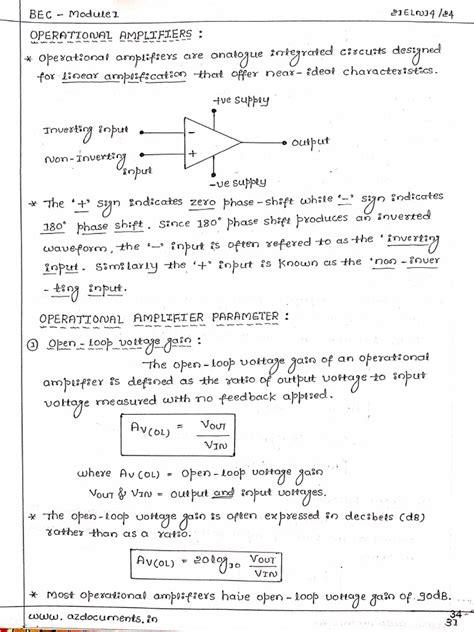 BEC - Module1 21ELN14/24
OPERATIONAL AMPLIFIERS :
* Operational amplifiers are analogue integrated circuits designed
for linear amplification that offer near-ideal characteristics.
+ve supply
Inverting input
−
output
Non-Inverting
input
+
-ve supply
* The '+' sign indicates zero phase-shift while '-' sign indicates
180° phase shift. Since 180° phase shift produces an inverted
waveform, the '-' input is often refered to as the 'inverting
input. Similarly the '+' input is known as the 'non-inver
-ting input.
OPERATIONAL AMPLIFIER PARAMETER :
① Open-loop voltage gain :
The open-loop voltage gain of an operational
amplifier is defined as the ratio of output voltage to input
voltage measured with no feedback applied.
AV(OL) = VOUT / VIN
where AV(OL) = Open-loop voltage gain
VOUT & VIN = output and input voltages.
* The open-loop voltage gain is often expressed in decibels (dB)
rather than as a ratio.
AV(OL) = 20log10 VOUT / VIN
* Most operational amplifiers have open-loop voltage gain of 90dB.
www.azdocuments.in
34
31